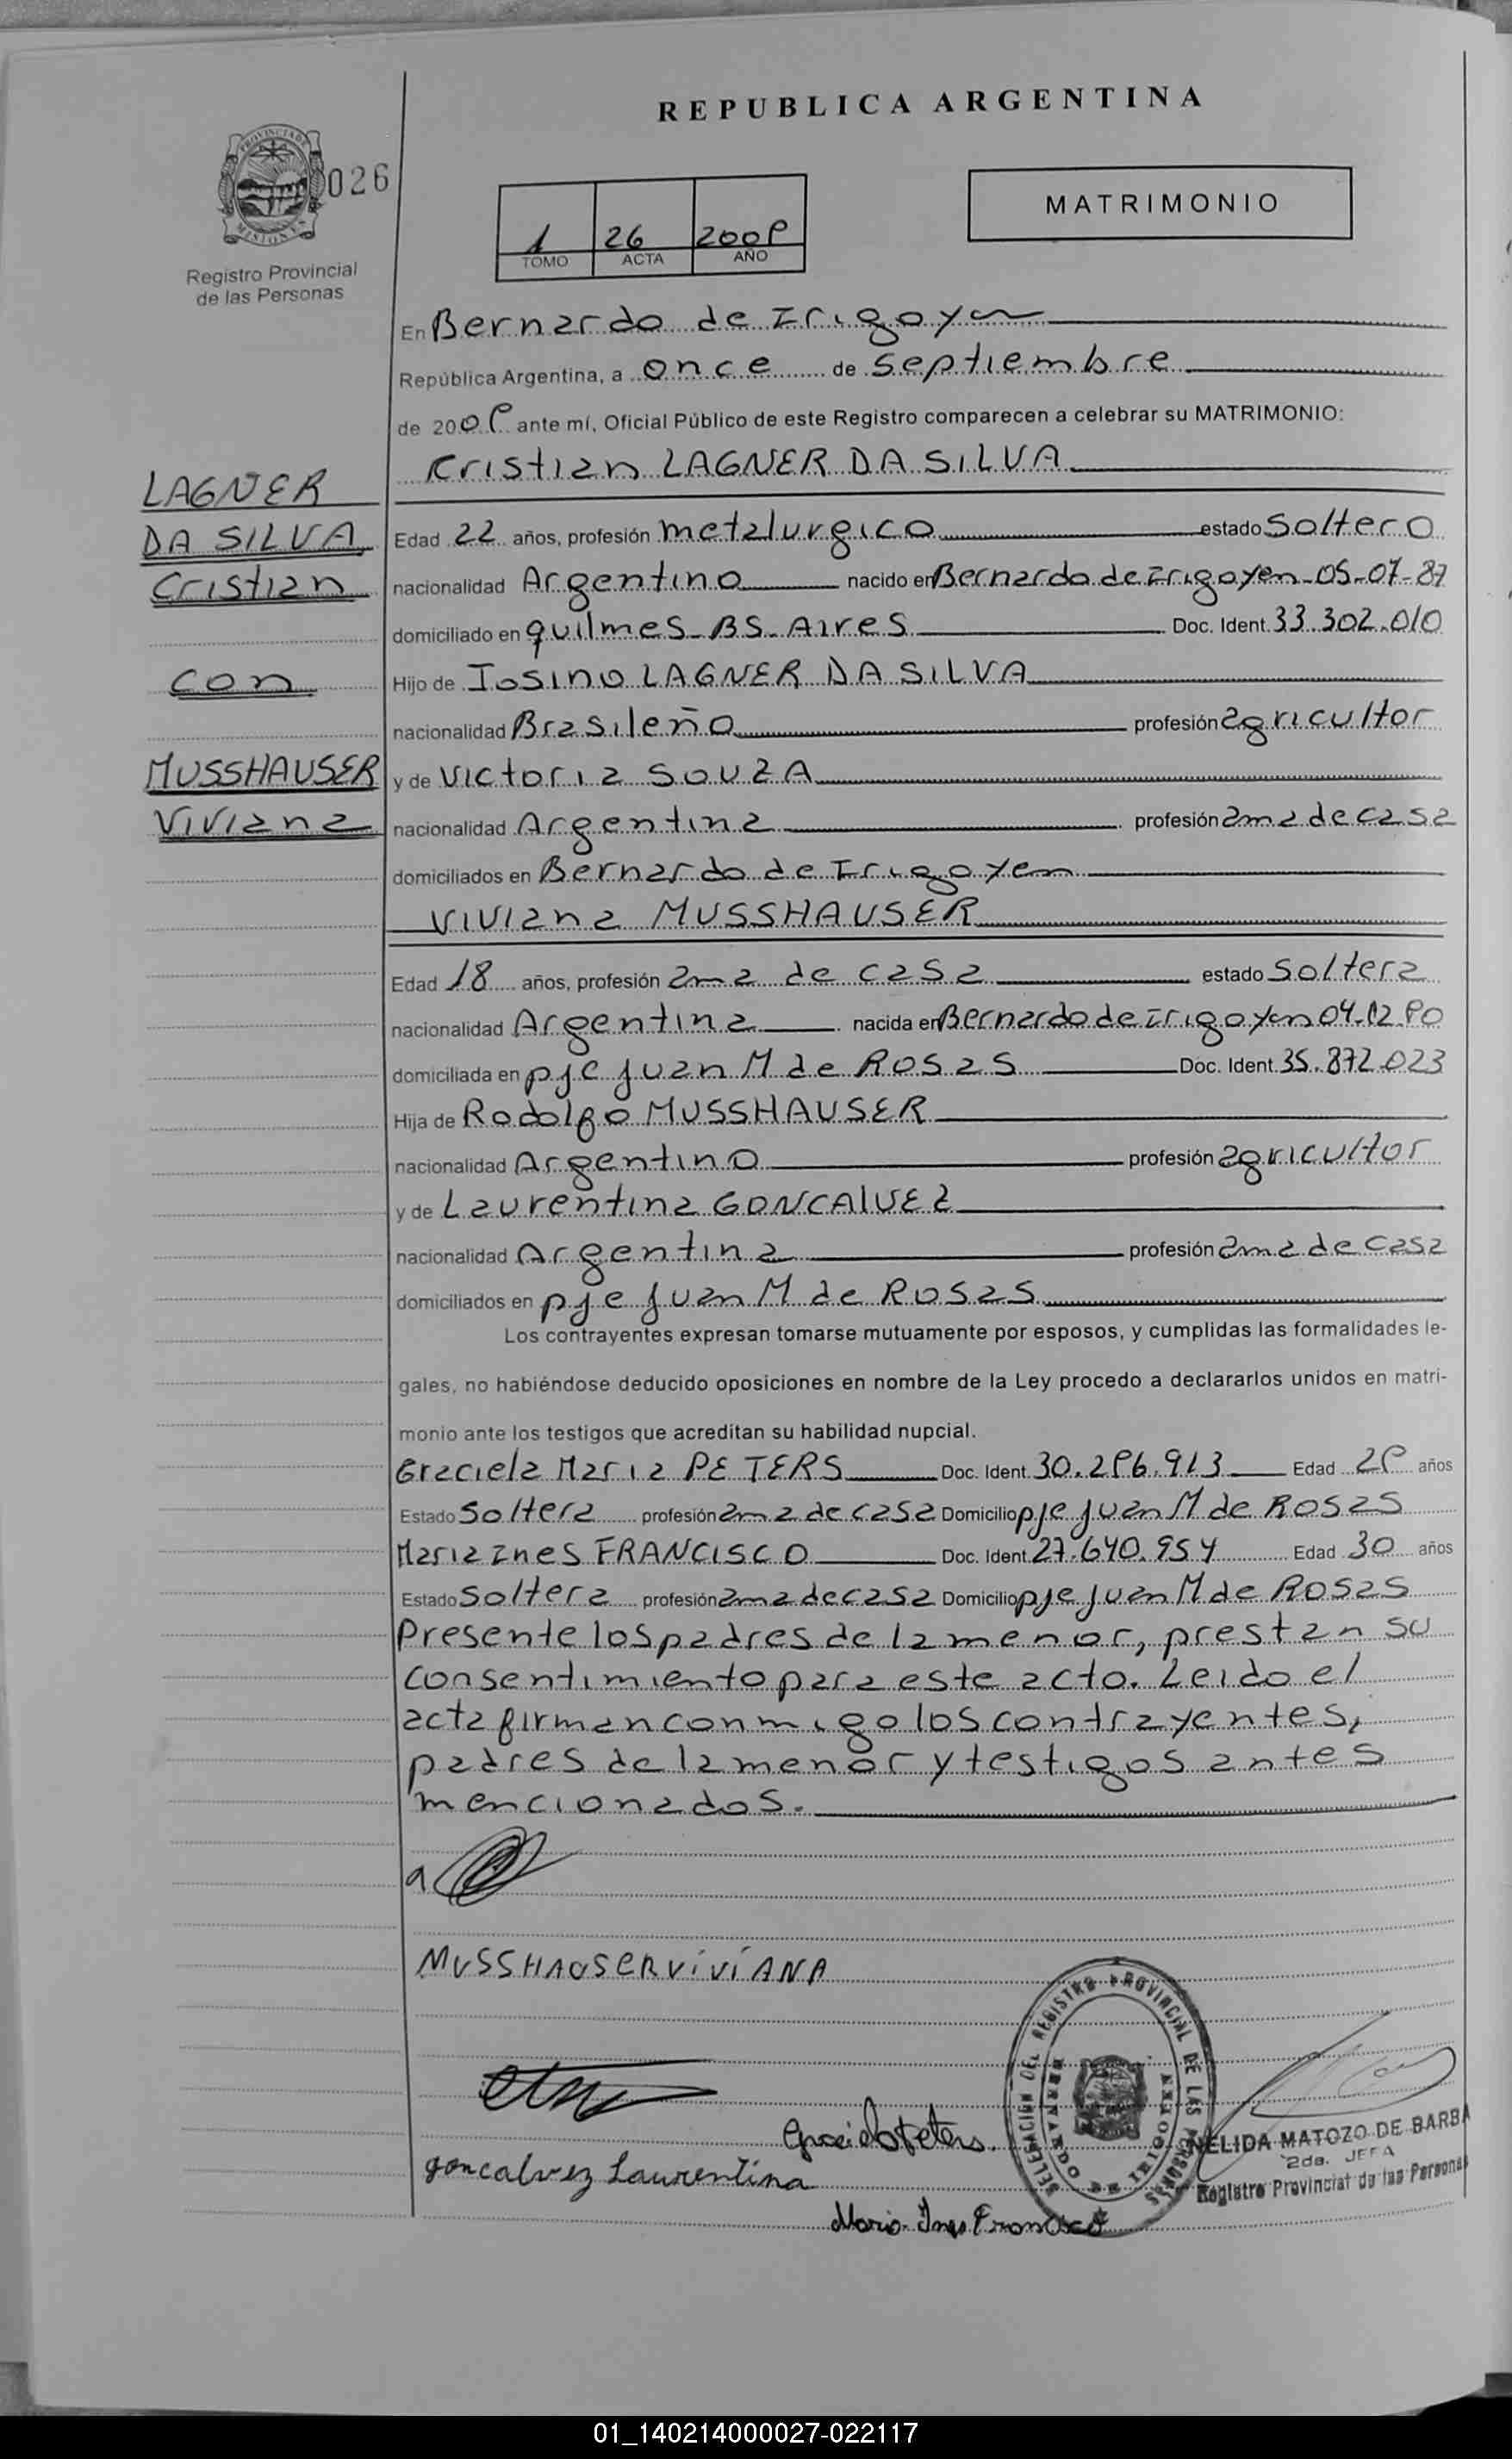 REPUBLICA ARGENTINA
026
MISIONES
Registro Provincial
de las Personas
1 26 2009
TOMO ACTA AÑO
MATRIMONIO
En Bernardo de Irigoyen
República Argentina, a once de septiembre
de 2009 ante mí, Oficial Público de este Registro comparecen a celebrar su MATRIMONIO:
Cristian LAGNER DA SILVA
LAGNER
DA SILVA,
Cristian
con
MUSSHAUSER
Viviana
Edad 22 años, profesión metalurgico estado Soltero
nacionalidad Argentino nacido en Bernardo de Irigoyen-05-07-87
domiciliado en quilmes-BS-Aires Doc. Ident. 33.302.010
Hijo de Iosino LAGNER DA SILVA
nacionalidad Brasileño profesión agricultor
y de Victoria SOUZA
nacionalidad Argentina profesión ama de casa
domiciliados en Bernardo de Irigoyen
Viviana MUSSHAUSER
Edad 18 años, profesión ama de casa estado Soltera
nacionalidad Argentina nacida en Bernardo de Irigoyen 04.12.90
domiciliada en pje Juan M de ROSas Doc. Ident. 35.872.023
Hija de Rodolfo MUSSHAUSER
nacionalidad Argentino profesión agricultor
y de Laurentina GONCAlVEZ
nacionalidad Argentina profesión ama de casa
domiciliados en pje Juan M de ROSas
Los contrayentes expresan tomarse mutuamente por esposos, y cumplidas las formalidades le-
gales, no habiéndose deducido oposiciones en nombre de la Ley procedo a declararlos unidos en matri-
monio ante los testigos que acreditan su habilidad nupcial.
Graciela Maria PETERS Doc. Ident. 30.296.913 Edad 29 años
Estado Soltera profesión ama de casa Domicilio pje Juan M de ROSas
Maria Ines FRANCISCO Doc. Ident. 27.640.954 Edad 30 años
Estado Soltera profesión ama de casa Domicilio pje Juan M de ROSas
Presente los padres de la menor, prestan su
consentimiento para este acto. Leido el
acta firman conmigo los contrayentes,
padres de la menor y testigos antes
mencionados.
MUSSHAUSER ViViANA
Graciela Peters.
goncalvez Laurentina
Maria Ines Francisco
DELEGACION DEL REGISTRO PROVINCIAL DE LAS PERSONAS
BERNARDO DE IRIGOYEN
NELIDA MATOZO DE BARBA
2da. JEFA
Registro Provincial de las Personas
01_140214000027-022117